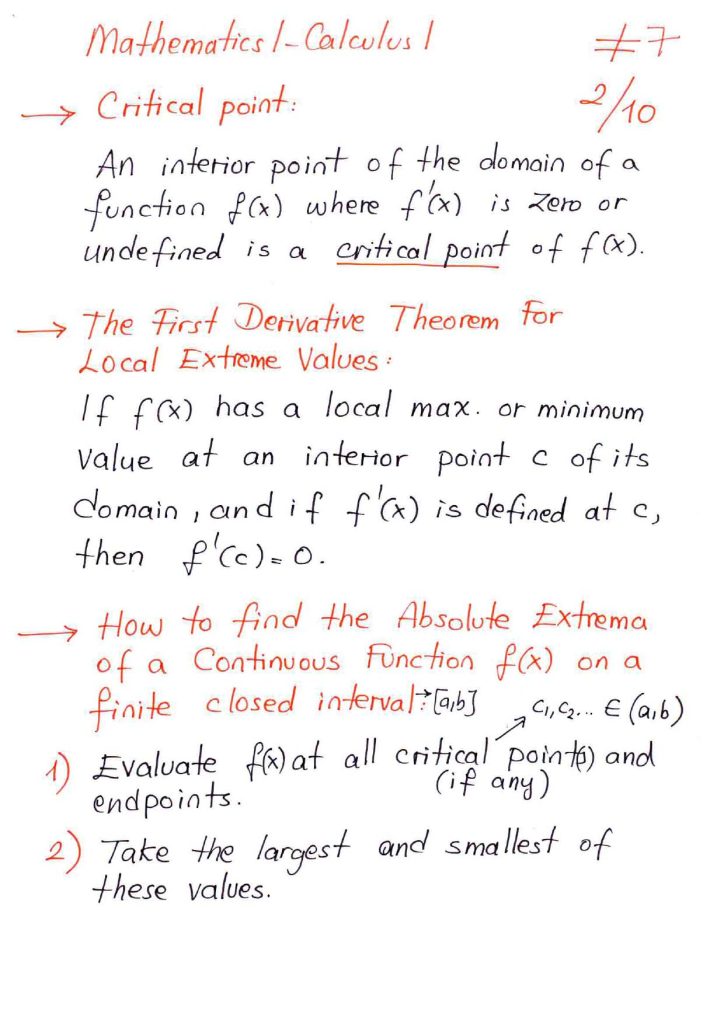 Mathematics 1 - Calculus 1 #7
2/10
→ Critical point:
An interior point of the domain of a
function f(x) where f'(x) is zero or
undefined is a critical point of f(x).
→ The First Derivative Theorem for
Local Extreme Values:
If f(x) has a local max. or minimum
value at an interior point c of its
domain, and if f'(x) is defined at c,
then f'(c) = 0.
→ How to find the Absolute Extrema
of a Continuous Function f(x) on a
finite closed interval?→[a,b] c₁, c₂... ∈ (a,b)
1) Evaluate f(x) at all critical point(s) and
(if any)
endpoints.
2) Take the largest and smallest of
these values.